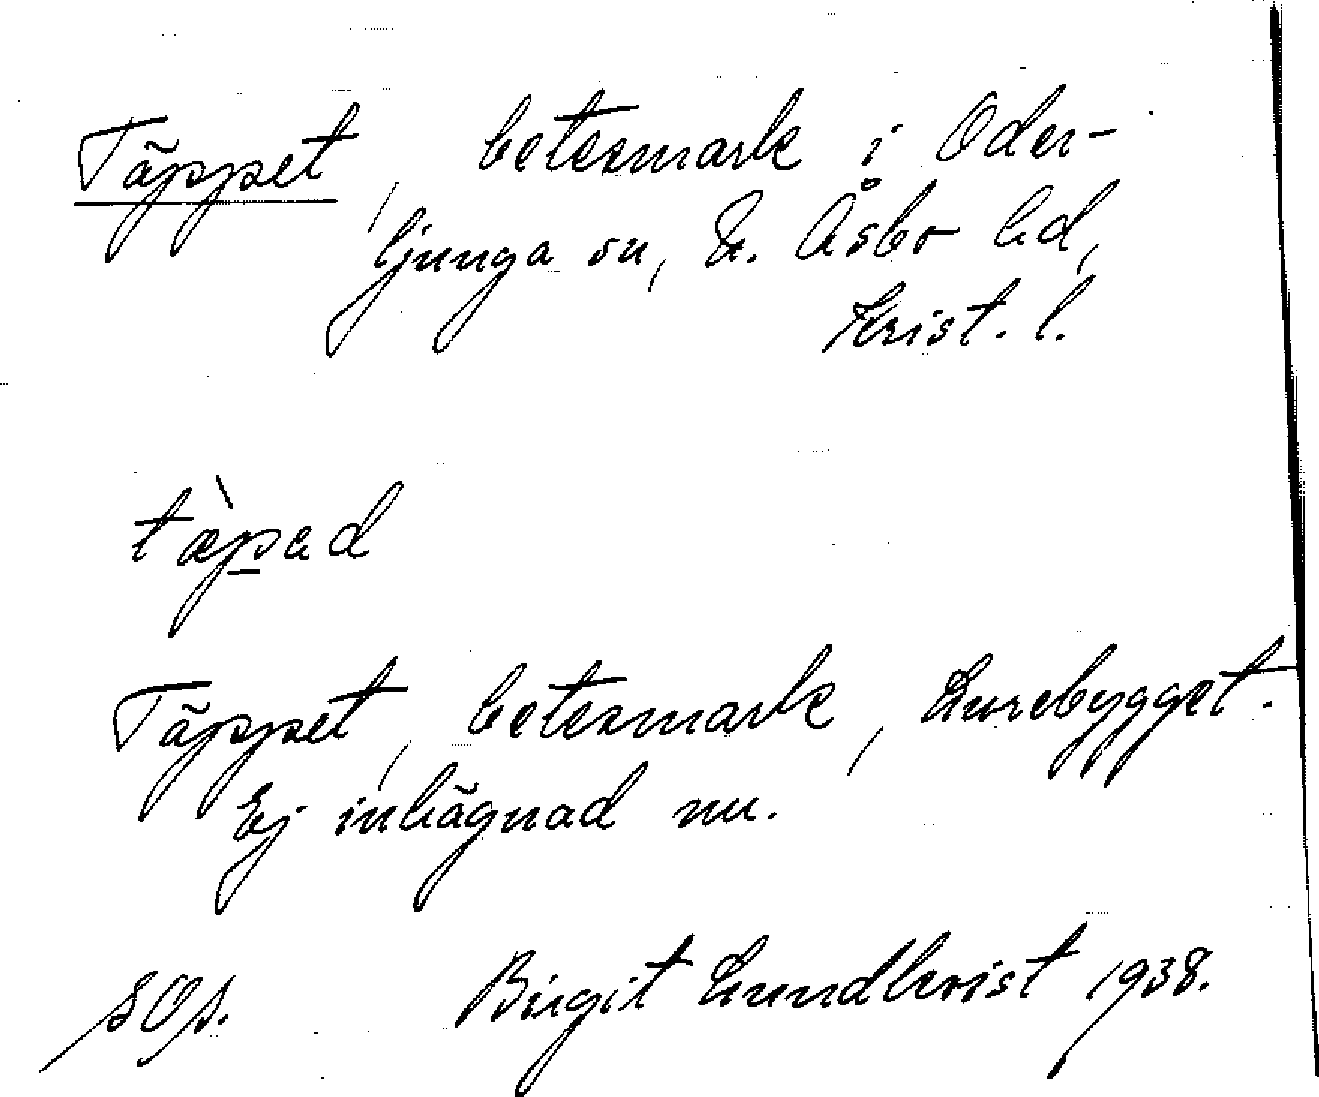 Täppet, betesmark i Oder-
ljunga sn, N. Åsbo hd,
Krist. l.
tæ̀pad
Täppet, betesmark, Lurebygget.
Ej inhägnad nu.
Birgit Lundkvist 1938.